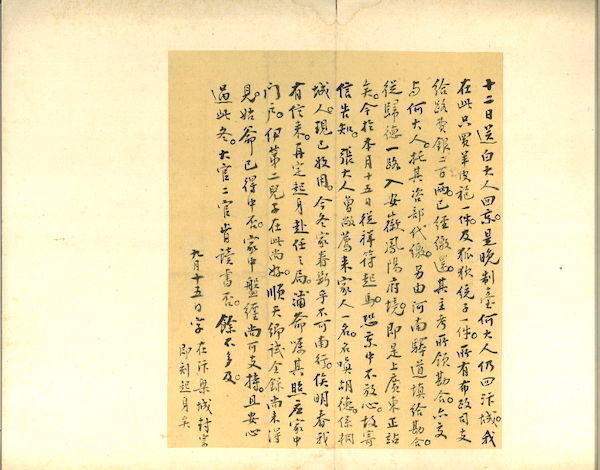 十二日送白大人回京是晚制臺何大人仍回汴城我
在此只買羊皮袍一件及狐狄統子一件所有布政司支
給路費銀二百兩已經繳還其主考所領勘合亦交
与何大人托其咨部代繳另由河南驛道填給勘合
從歸德一路入安徽鳳陽府境即是上廣東正站
矣今於本月十五日從祥符起馬恐京中不放心故寄
信告知張大人曾敝薦来家人一名名喚胡德係桐
城人現已收用今冬家眷断乎不可南行俟明春我
有信来再定起身赴任之局蒲爺嘱其照應家中
门户伊第二兒子在此尚好順天鄉試全録尚未得
見姑爺已得中否家中盤缠尚可支持且安心
過此冬大官二官肯讀書否餘不多及
九月十五日字
在汴梁城封寄
即刻起身矣